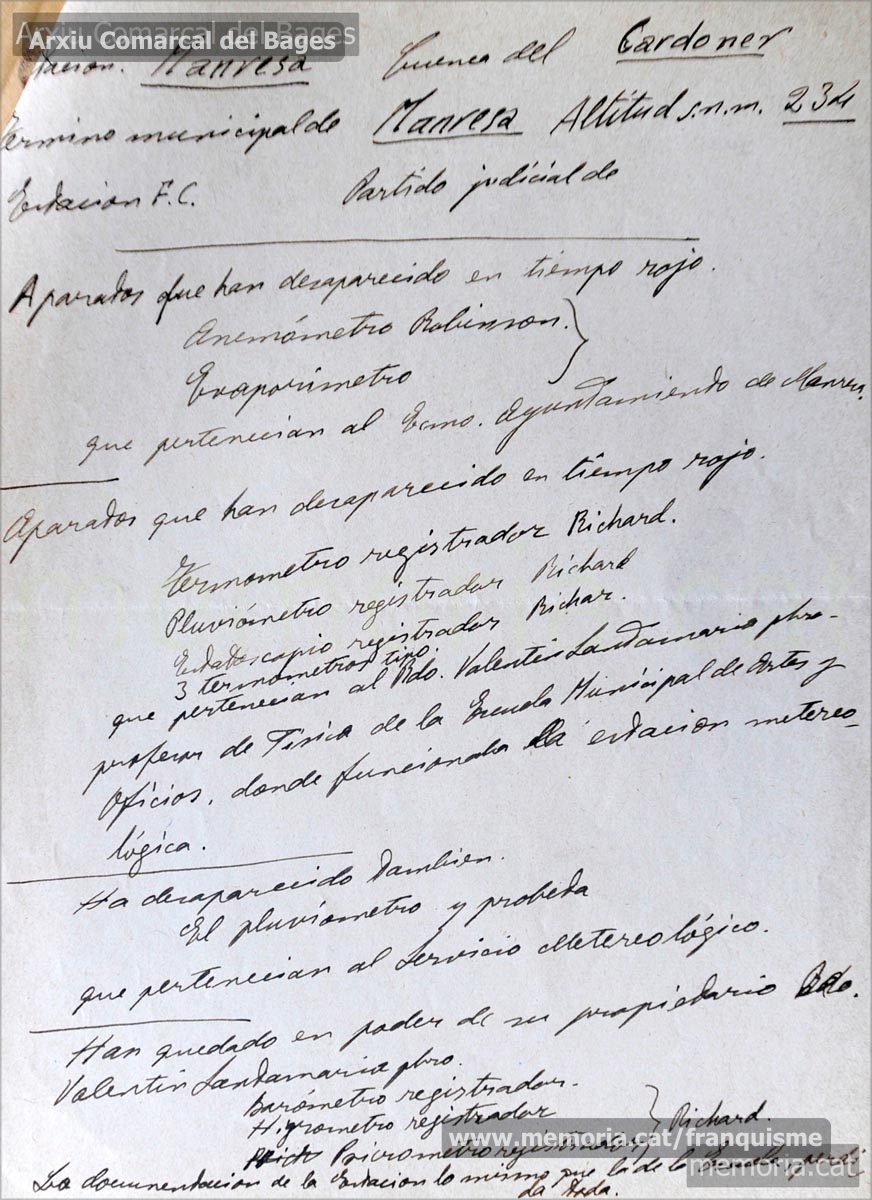 Arxiu Comarcal del Bages
Arxiu Comarcal del Bages
tacion. Manresa Cuenca del Cardoner
Termino municipal de Manresa Altitud s.n.m. 234
Estacion F.C. Partido judicial de
Aparatos que han desaparecido en tiempo rojo.
Anemómetro Robinson.
Evaporímetro
que pertenecian al Ecmo. Ayuntamiento de Manresa.
Aparatos que han desaparecido en tiempo rojo.
Termometro registrador Richard.
Pluviómetro registrador Richard
Estatoscopio registrador Richar.
3 termometros tipo.
que pertenecian al Rdo. Valentin Santamaria pbro.
profesor de Fisica de la Escuela Municipal de Artes y
Oficios, donde funcionaba la estacion metereo-
lógica.
Ha desaparecido tambien.
El pluviometro y probeta
que pertenecian al Servicio Metereológico.
Han quedado en poder de su propietario Rdo.
Valentin Santamaria pbro.
Barómetro registrador.
Higrometro registrador
Psicrometro registrador Richard.
La documentacion de la Estacion lo mismo que la de la Escuela, perdi
da toda.
www.memoria.cat/franquisme
memoria.cat